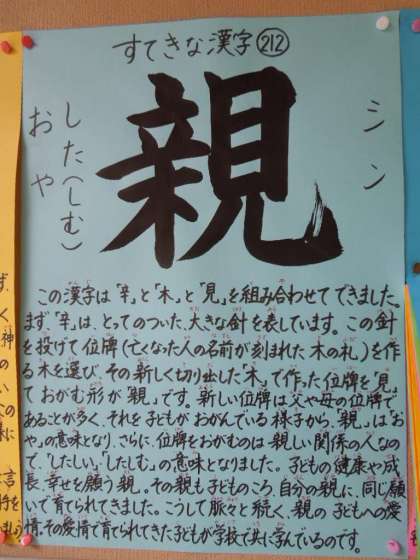 すてきな漢字 212
シン
親
した(しむ)
おや
この漢字は「辛」と「木」と「見」を組み合わせてできました。
まず「辛」は、とってのついた、大きな針を表しています。この針
を投げて位牌(亡くなった人の名前が刻まれた木の札)を作
る木を選び、その新しく切り出した「木」で作った位牌を「見」
ておがむ形が「親」です。新しい位牌は父や母の位牌で
あることが多く、それを子どもがおがんでいる様子から、「親」は「お
や」の意味となり、さらに、位牌をおがむのは親しい関係の人なの
で、「したしい」「したしむ」の意味となりました。子どもの健康や成
長、幸せを願う親。その親も子どものころ、自分の親に、同じ願
いで育てられてきました。こうして脈々と続く、親の子どもへの愛
情。その愛情で育てられてきた子どもが学校で共に学んでいるのです。